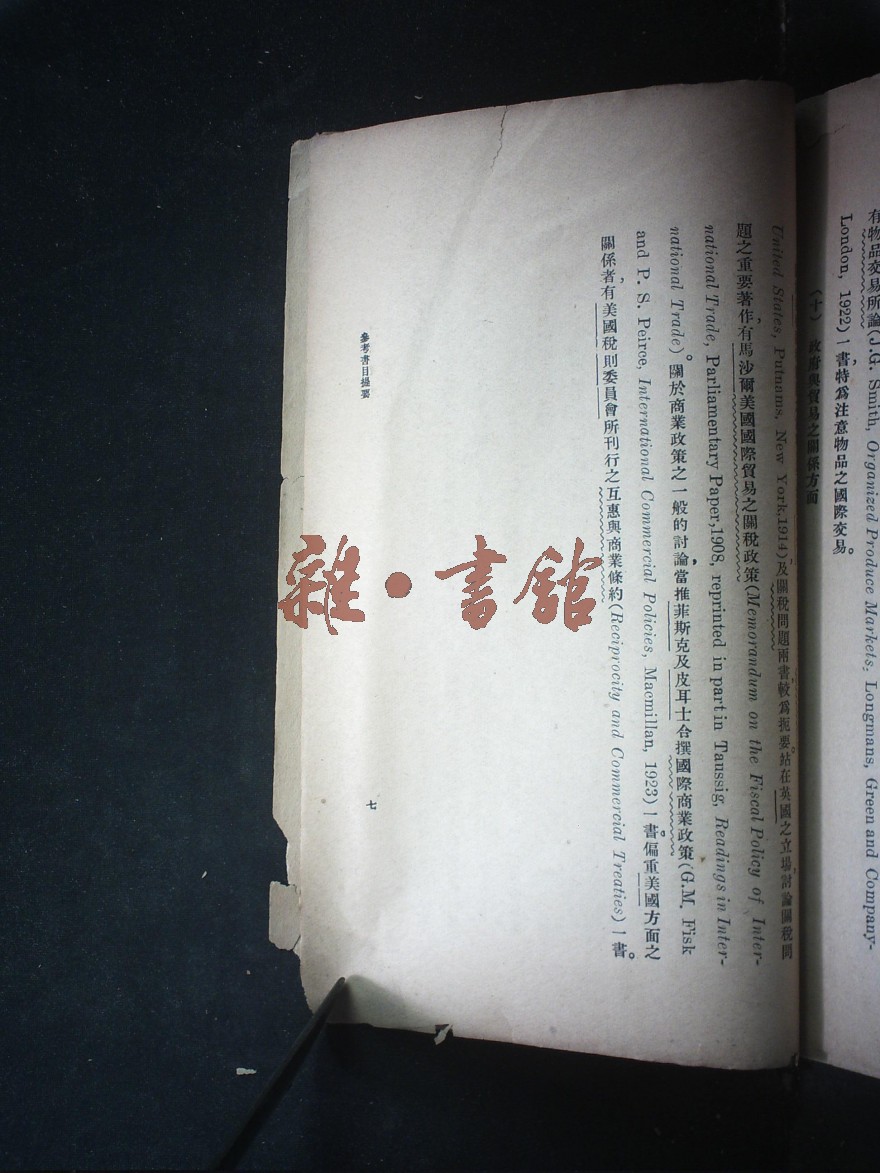 有物品交易所論(J.G. Smith, Organized Produce Markets; Longmans, Green and Company-
London, 1922)一書,特為注意物品之國際交易。
(十) 政府與貿易之關係方面
United States, Putnams, New York, 1914)及關稅問題兩書,較為扼要。站在英國之立場,討論關稅問
題之重要著作,有馬沙爾美國國際貿易之關稅政策(Memorandum on the Fiscal Policy of Inter-
national Trade, Parliamentary Paper, 1908, reprinted in part in Taussig, Readings in Inter-
national Trade)。關於商業政策之一般的討論,當推菲斯克及皮耳士合撰國際商業政策(G.M. Fisk
and P. S. Peirce, International Commercial Policies, Macmillan, 1923)一書。偏重美國方面之
關係者,有美國稅則委員會所刊行之互惠與商業條約(Reciprocity and Commercial Treaties)一書。
參考書目提要
七
雜·書館